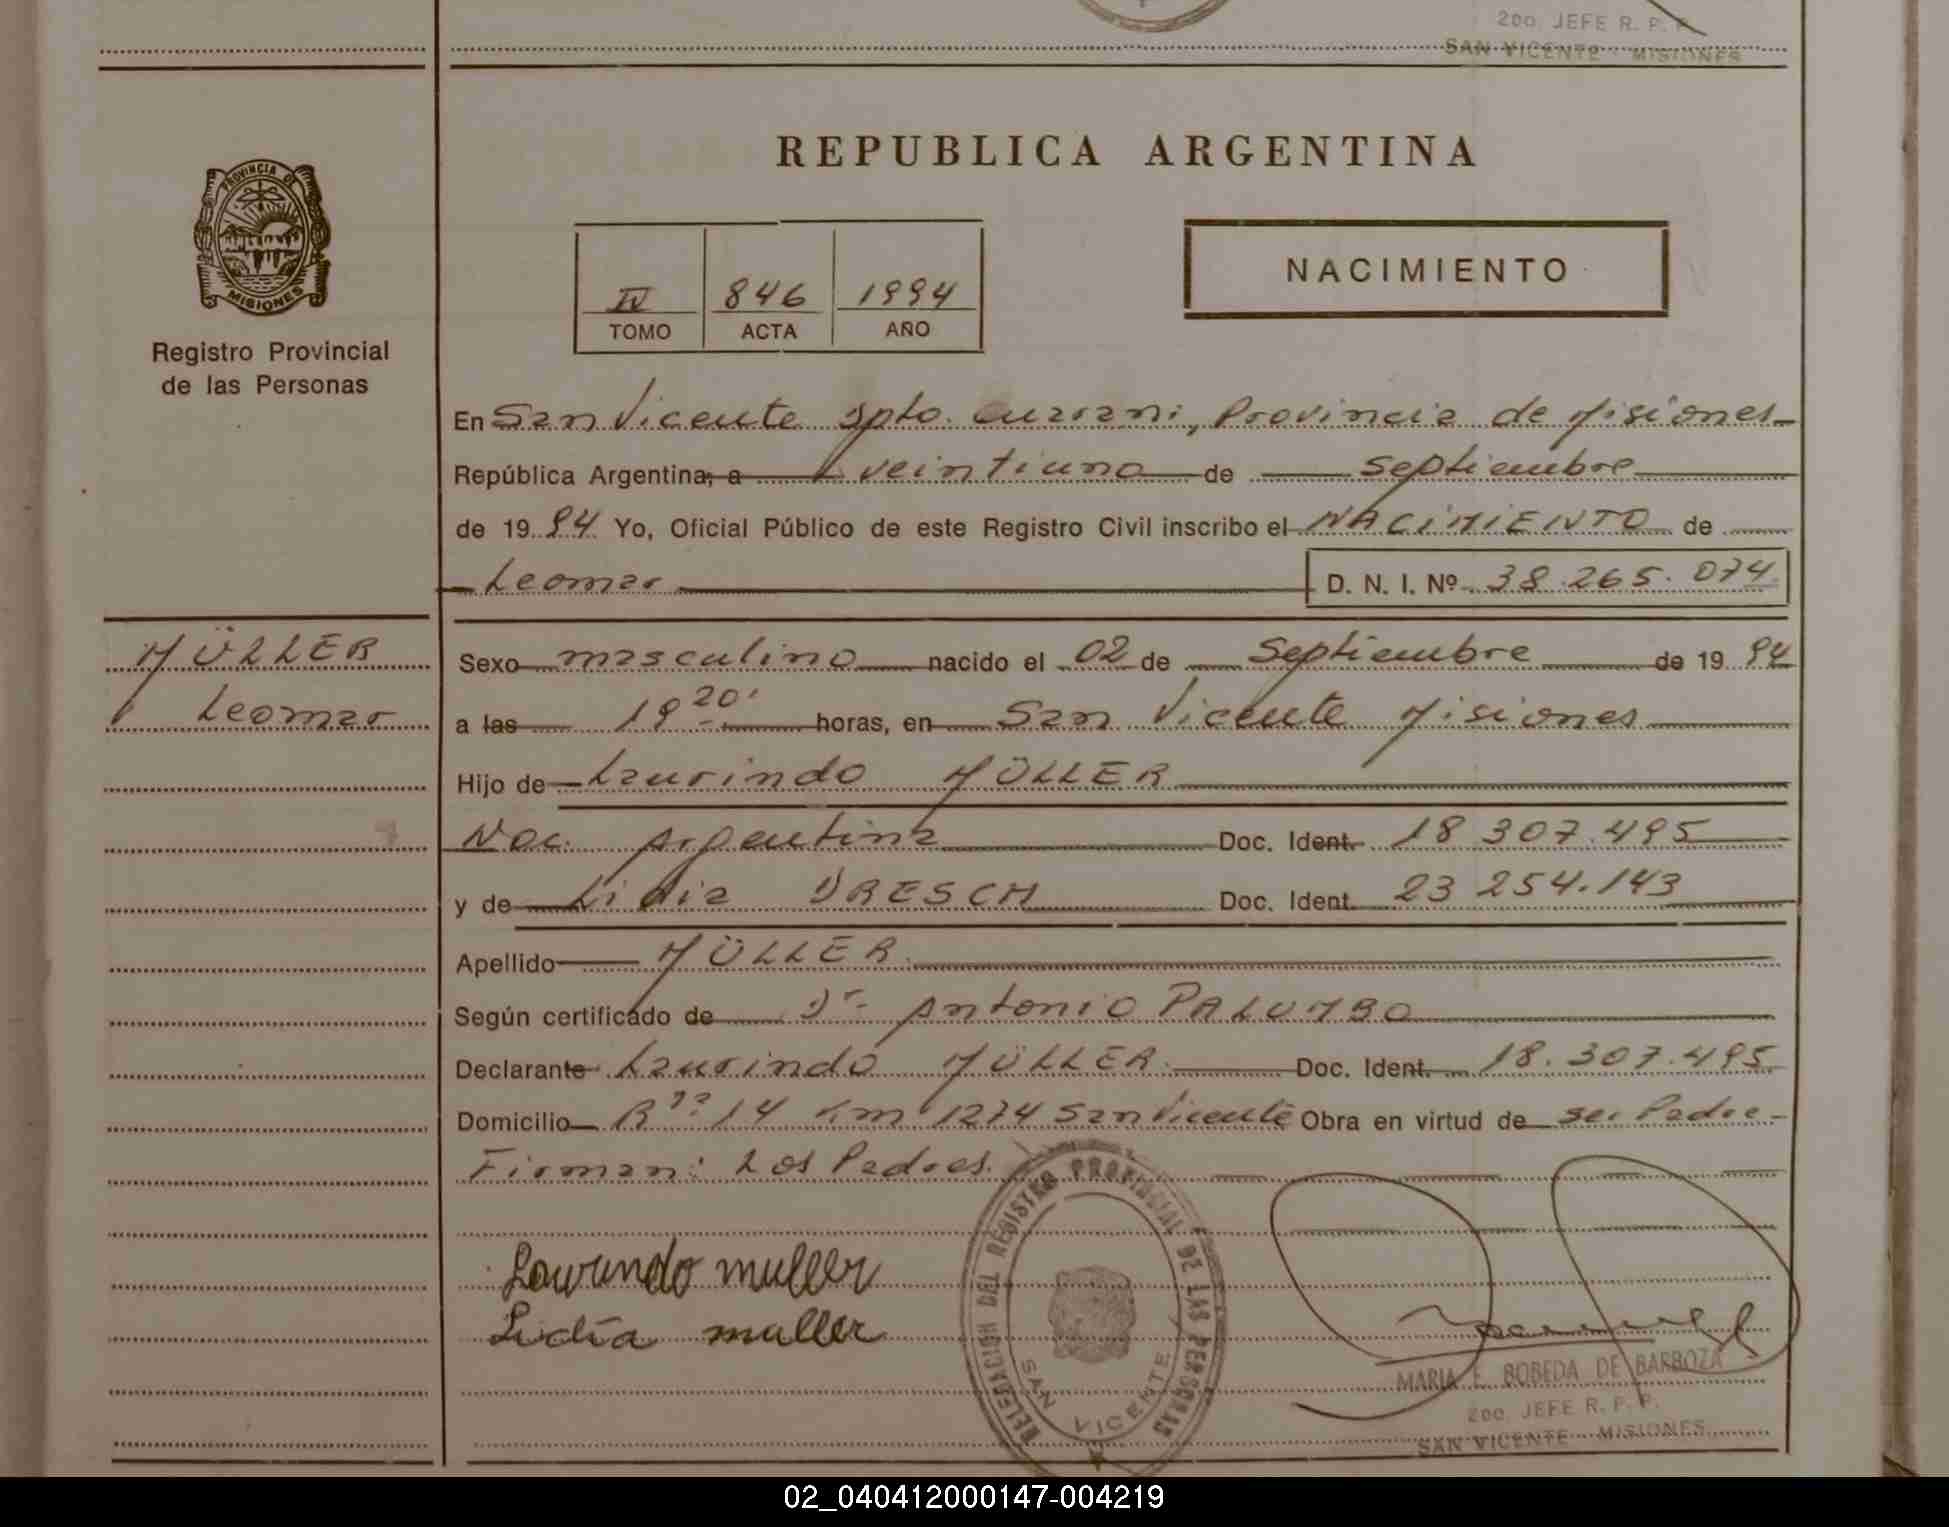 2do. JEFE R. P. P.
SAN VICENTE - MISIONES
REPUBLICA ARGENTINA
PROVINCIA DE MISIONES
Registro Provincial
de las Personas
IV 846 1994
TOMO ACTA AÑO
NACIMIENTO
En San Vicente Dpto. Guaraní, Provincia de Misiones
República Argentina, a veintiuno de septiembre
de 1994 Yo, Oficial Público de este Registro Civil inscribo el NACIMIENTO de
Leomar D. N. I. Nº 38.265.074
MÜLLER
Leomar
Sexo masculino nacido el 02 de Septiembre de 1994
a las 19 20' horas, en San Vicente Misiones
Hijo de Laurindo MÜLLER
Nac. Argentina Doc. Ident. 18 307.495
y de Lidia DRESCH Doc. Ident. 23 254.143
Apellido MÜLLER
Según certificado de Dr. Antonio PALUMBO
Declarante Laurindo MÜLLER Doc. Ident. 18.307.495
Domicilio R 14 Km 1274 San Vicente Obra en virtud de ser Padre
Firman: Los Padres.
Laurindo muller
Lidia muller
DELEGACION DEL REGISTRO PROVINCIAL DE LAS PERSONAS
SAN VICENTE
MARIA E. BOBEDA DE BARBOZA
2do. JEFE R. P. P.
SAN VICENTE - MISIONES
02_040412000147-004219